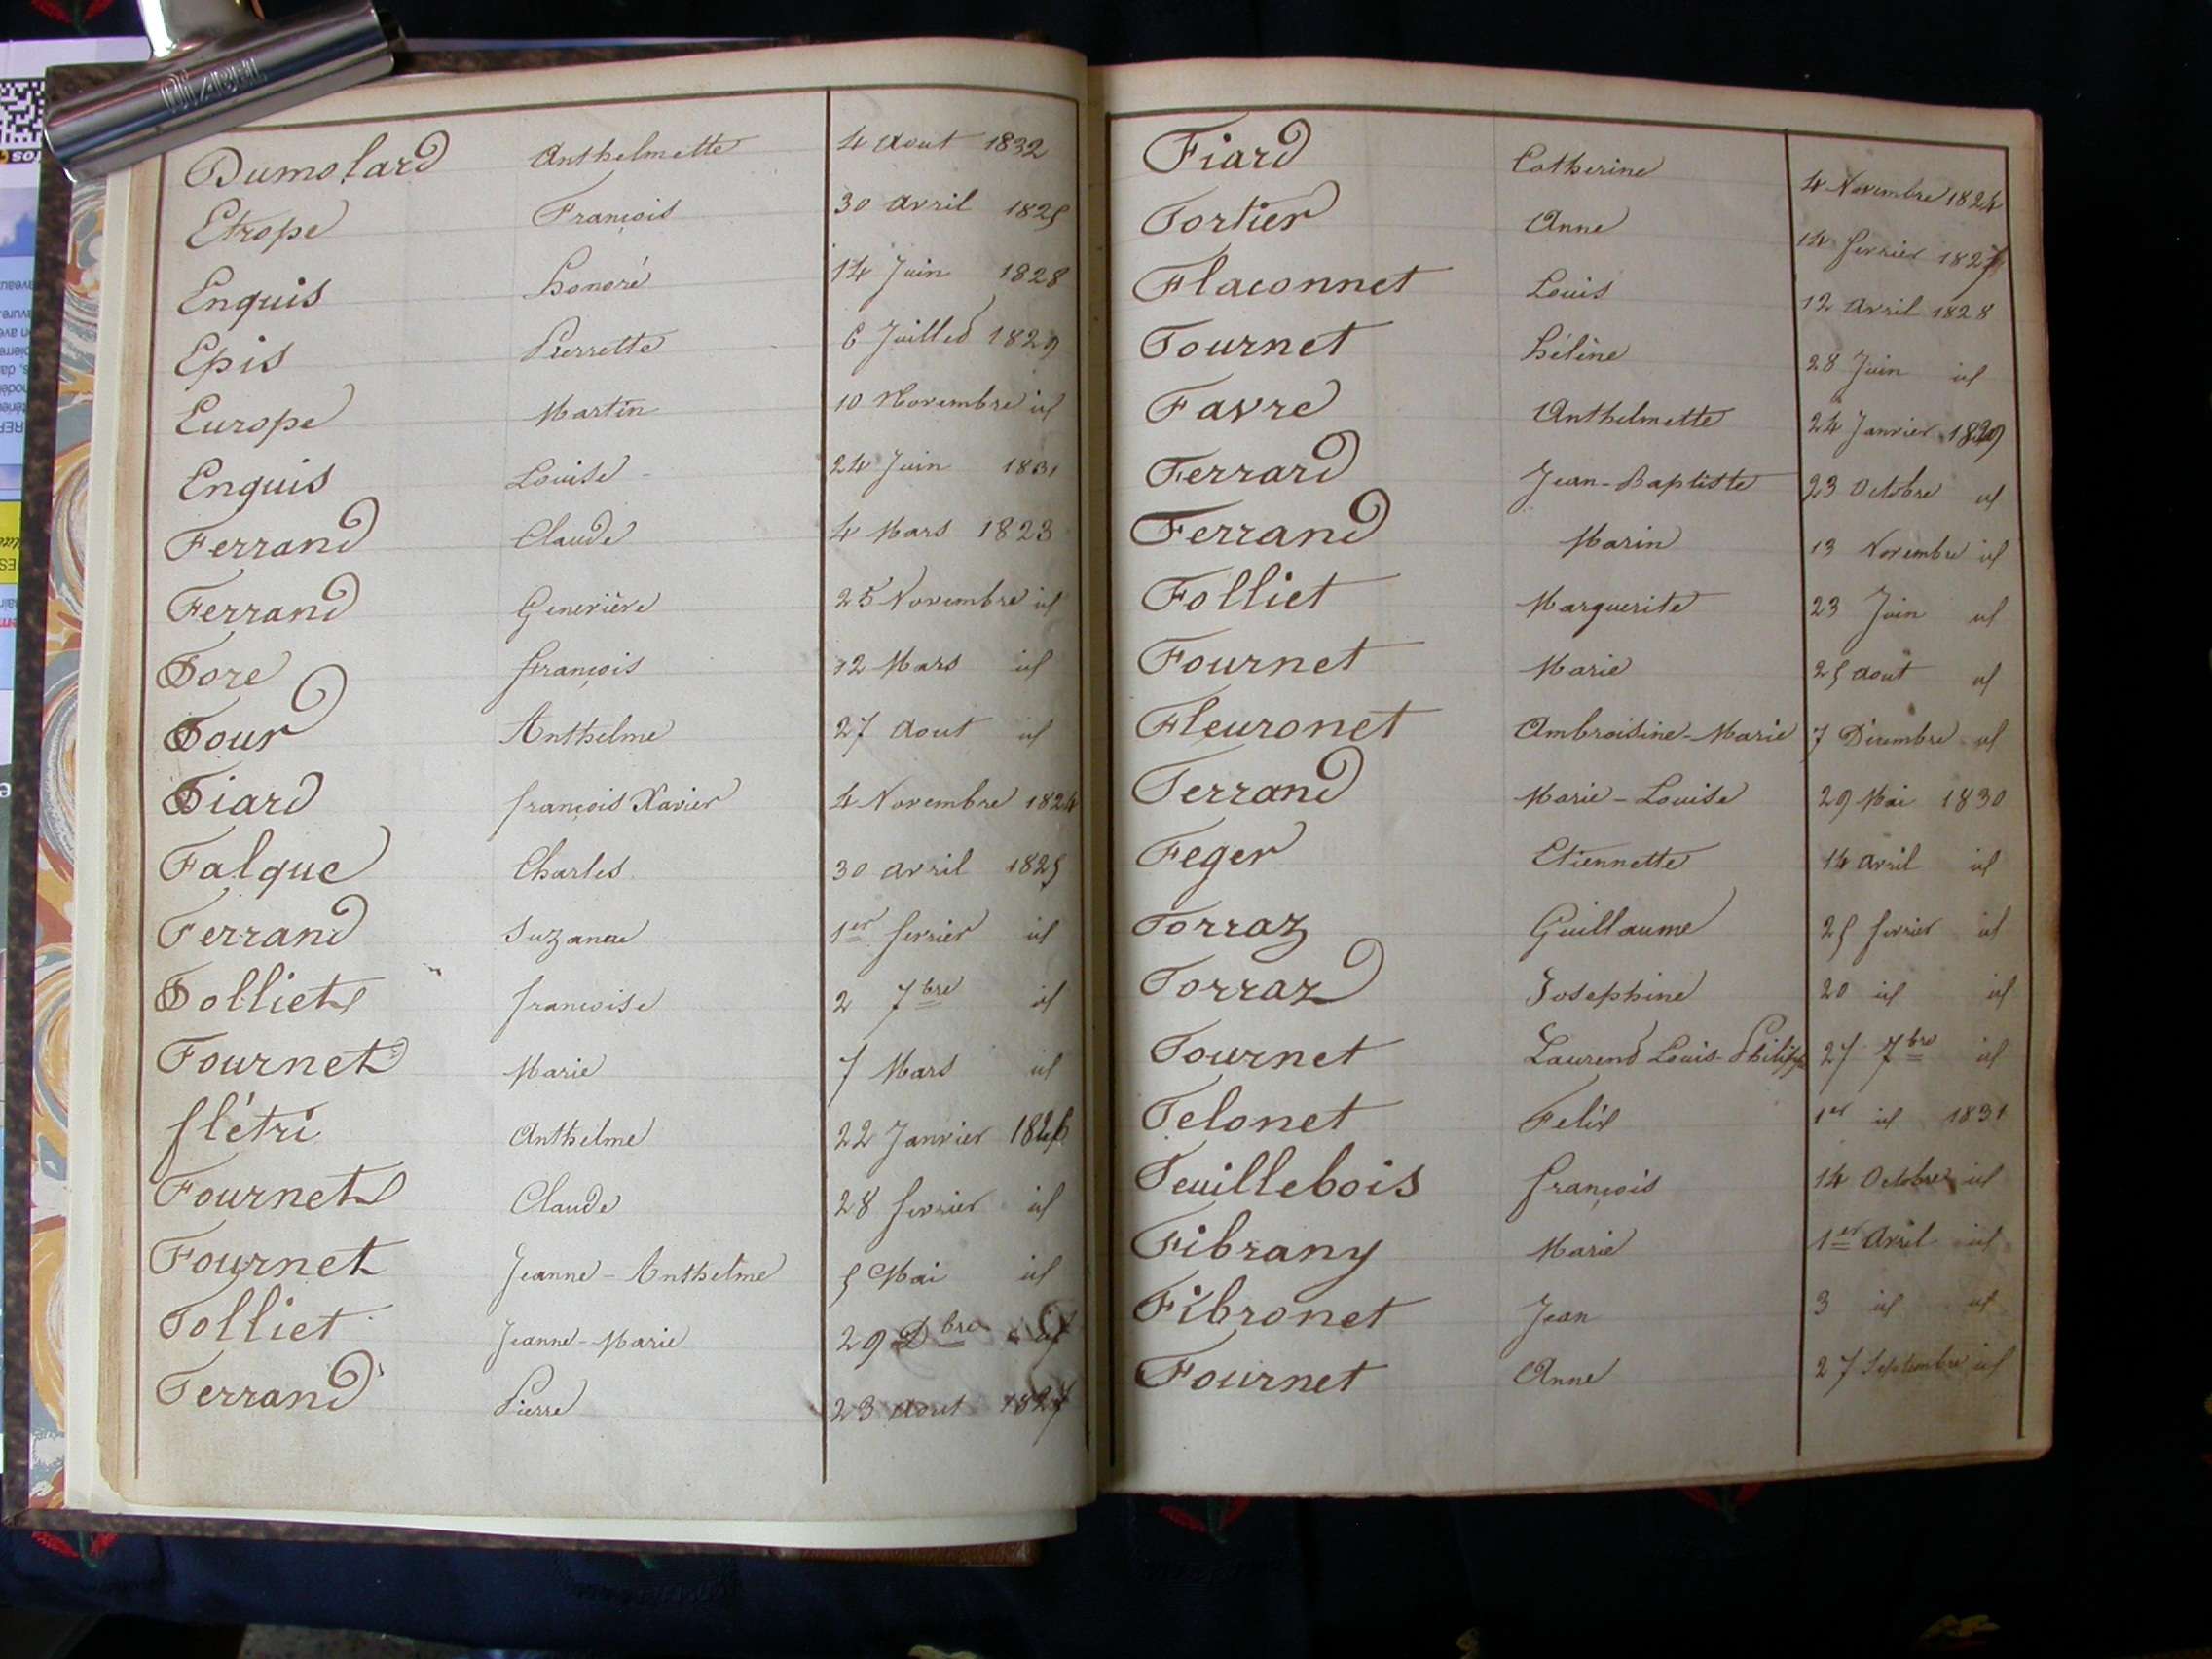 Dumolard Anthelmette 4 Aout 1832
Etrope François 30 avril 1825
Enquis honoré 14 Juin 1828
Epis Pierrette 6 Juillet 1829
Europe Martin 10 Novembre id
Enquis Louise 24 Juin 1831
Ferrand Claude 4 Mars 1823
Ferrand Geneviève 25 Novembre id
Fore françois 12 Mars id
Four Anthelme 27 Aout id
Fiard françois Xavier 4 Novembre 1824
Falque Charles 30 avril 1825
Ferrand Suzanne 1er fevrier id
Folliet françoise 2 7bre id
Fournet Marie 7 Mars id
flétri Anthelme 22 Janvier 1826
Fournet Claude 28 fevrier id
Fournet Jeanne-Anthelme 5 Mai id
Folliet Jeanne-Marie 29 Dbre id
Ferrand Pierre 23 Aout 1827
Fiard Catherine 4 Novembre 1824
Fortier Anne 14 fevrier 1827
Flaconnet Louis 12 avril 1828
Fournet hélène 28 Juin id
Favre Anthelmette 24 Janvier 1829
Ferrard Jean-Baptiste 23 Octobre id
Ferrand Marin 13 Novembre id
Folliet Marguerite 23 Juin id
Fournet Marie 25 Aout id
Fleuronet Ambroisine-Marie 7 Décembre id
Ferrand Marie-Louise 29 Mai 1830
Feger Etiennette 14 avril id
Forraz Guillaume 25 fevrier id
Forraz Josephine 20 id id
Fournet Laurend Louis-Philippe 27 7bre id
Felonet Felix 1er id 1831
Feuillebois françois 14 Octobre id
Fibrany Marie 1er Avril id
Fibronet Jean 3 id id
Fournet Anne 27 Septembre id